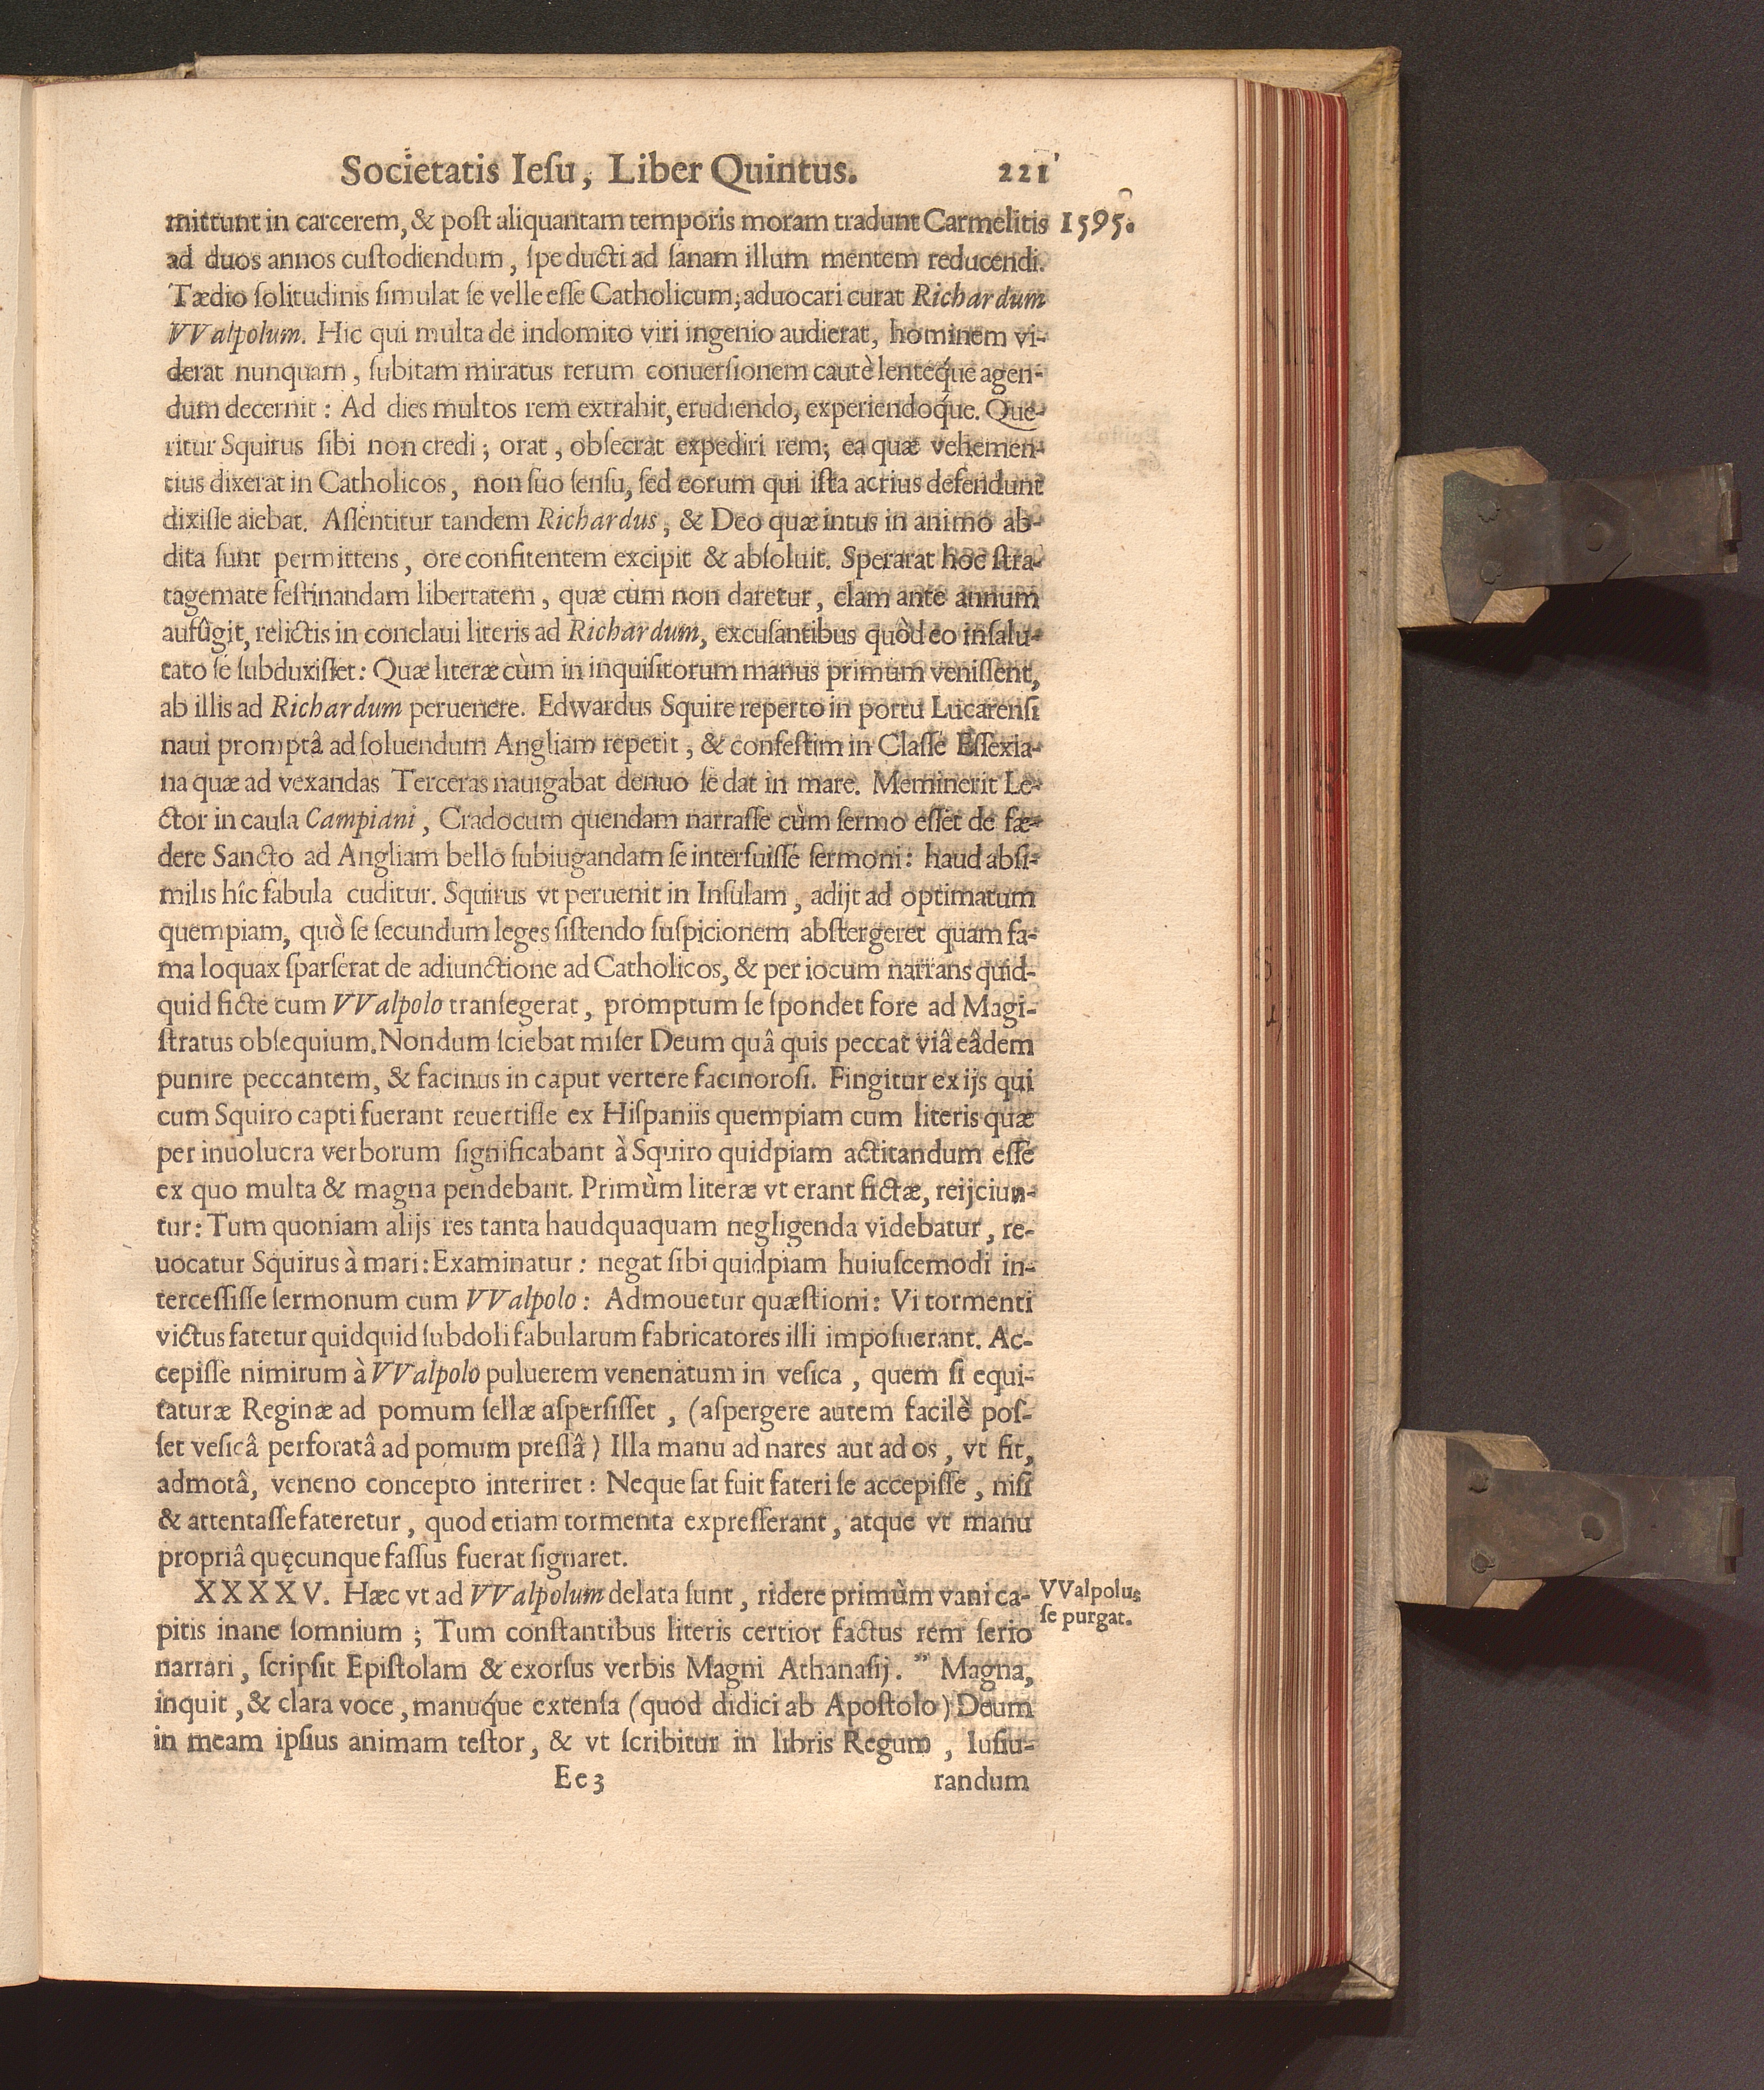 Societatis Iesu, Liber Quintus. 221
mittunt in carcerem, & post aliquantam temporis moram tradunt Carmelitis 1595.
ad duos annos custodiendum, spe ducti ad sanam illum mentem reducendi.
Tædio solitudinis simulat se velle esse Catholicum, aduocari curat Richardum
VValpolum. Hic qui multa de indomito viri ingenio audierat, hominem vi-
derat nunquam, subitam miratus rerum conuersionem cautè lentéque agen-
dum decernit: Ad dies multos rem extrahit, erudiendo, experiendoque. Que-
ritur Squirus sibi non credi; orat, obsecrat expediri rem; ea quæ vehemen-
tius dixerat in Catholicos, non suo sensu, sed eorum qui ista acrius defendunt
dixisse aiebat. Assentitur tandem Richardus, & Deo quæ intus in animo ab-
dita sunt permittens, ore confitentem excipit & absoluit. Sperarat hoc stra-
tagemate festinandam libertatem, quæ cùm non daretur, clam ante annum
aufûgit, relictis in conclaui literis ad Richardum, excusantibus quòd eo insalu-
tato se subduxisset: Quæ literæ cùm in inquisitorum manus primùm venissent,
ab illis ad Richardum peruenere. Edwardus Squire reperto in portu Lucarensi
naui promptâ ad soluendum Angliam repetit, & confestim in Classe Essexia-
na quæ ad vexandas Terceras nauigabat denuo se dat in mare. Meminerit Le-
ctor in causa Campiani, Cradocum quendam narrasse cùm sermo esset de fæ-
dere Sancto ad Angliam bello subiugandam se interfuisse sermoni: haud absi-
milis hîc fabula cuditur. Squirus vt peruenit in Insulam, adijt ad optimatum
quempiam, quò se secundum leges sistendo suspicionem abstergeret quam fa-
ma loquax sparserat de adiunctione ad Catholicos, & per iocum narrans quid-
quid fictè cum VValpolo transegerat, promptum se spondet fore ad Magi-
stratus obsequium. Nondum sciebat miser Deum quâ quis peccat viâ eâdem
punire peccantem, & facinus in caput vertere facinorosi. Fingitur ex ijs qui
cum Squiro capti fuerant reuertisse ex Hispaniis quempiam cum literis quæ
per inuolucra verborum significabant à Squiro quidpiam actitandum esse
ex quo multa & magna pendebant. Primùm literæ vt erant fictæ, reijciun-
tur: Tum quoniam alijs res tanta haudquaquam negligenda videbatur, re-
uocatur Squirus à mari: Examinatur: negat sibi quidpiam huiuscemodi in-
tercessisse sermonum cum VValpolo: Admouetur quæstioni: Vi tormenti
victus fatetur quidquid subdoli fabularum fabricatores illi imposuerant. Ac-
cepisse nimirum à VValpolo puluerem venenatum in vesica, quem si equi-
taturæ Reginæ ad pomum sellæ aspersisset, (aspergere autem facilè pos-
set vesicâ perforatâ ad pomum pressâ) Illa manu ad nares aut ad os, vt fit,
admotâ, veneno concepto interiret: Neque sat fuit fateri se accepisse, nisi
& attentasse fateretur, quod etiam tormenta expresserant, atque vt manu
propriâ quęcunque fassus fuerat signaret.
XXXXV. Hæc vt ad VValpolum delata sunt, ridere primùm vani ca-
pitis inane somnium; Tum constantibus literis certior factus rem serio
narrari, scripsit Epistolam & exorsus verbis Magni Athanasij. " Magna,
inquit, & clara voce, manuque extensa (quod didici ab Apostolo) Deum
in meam ipsius animam testor, & vt scribitur in libris Regum, Iusiu-
VValpolus
se purgat.
Ee3 randum